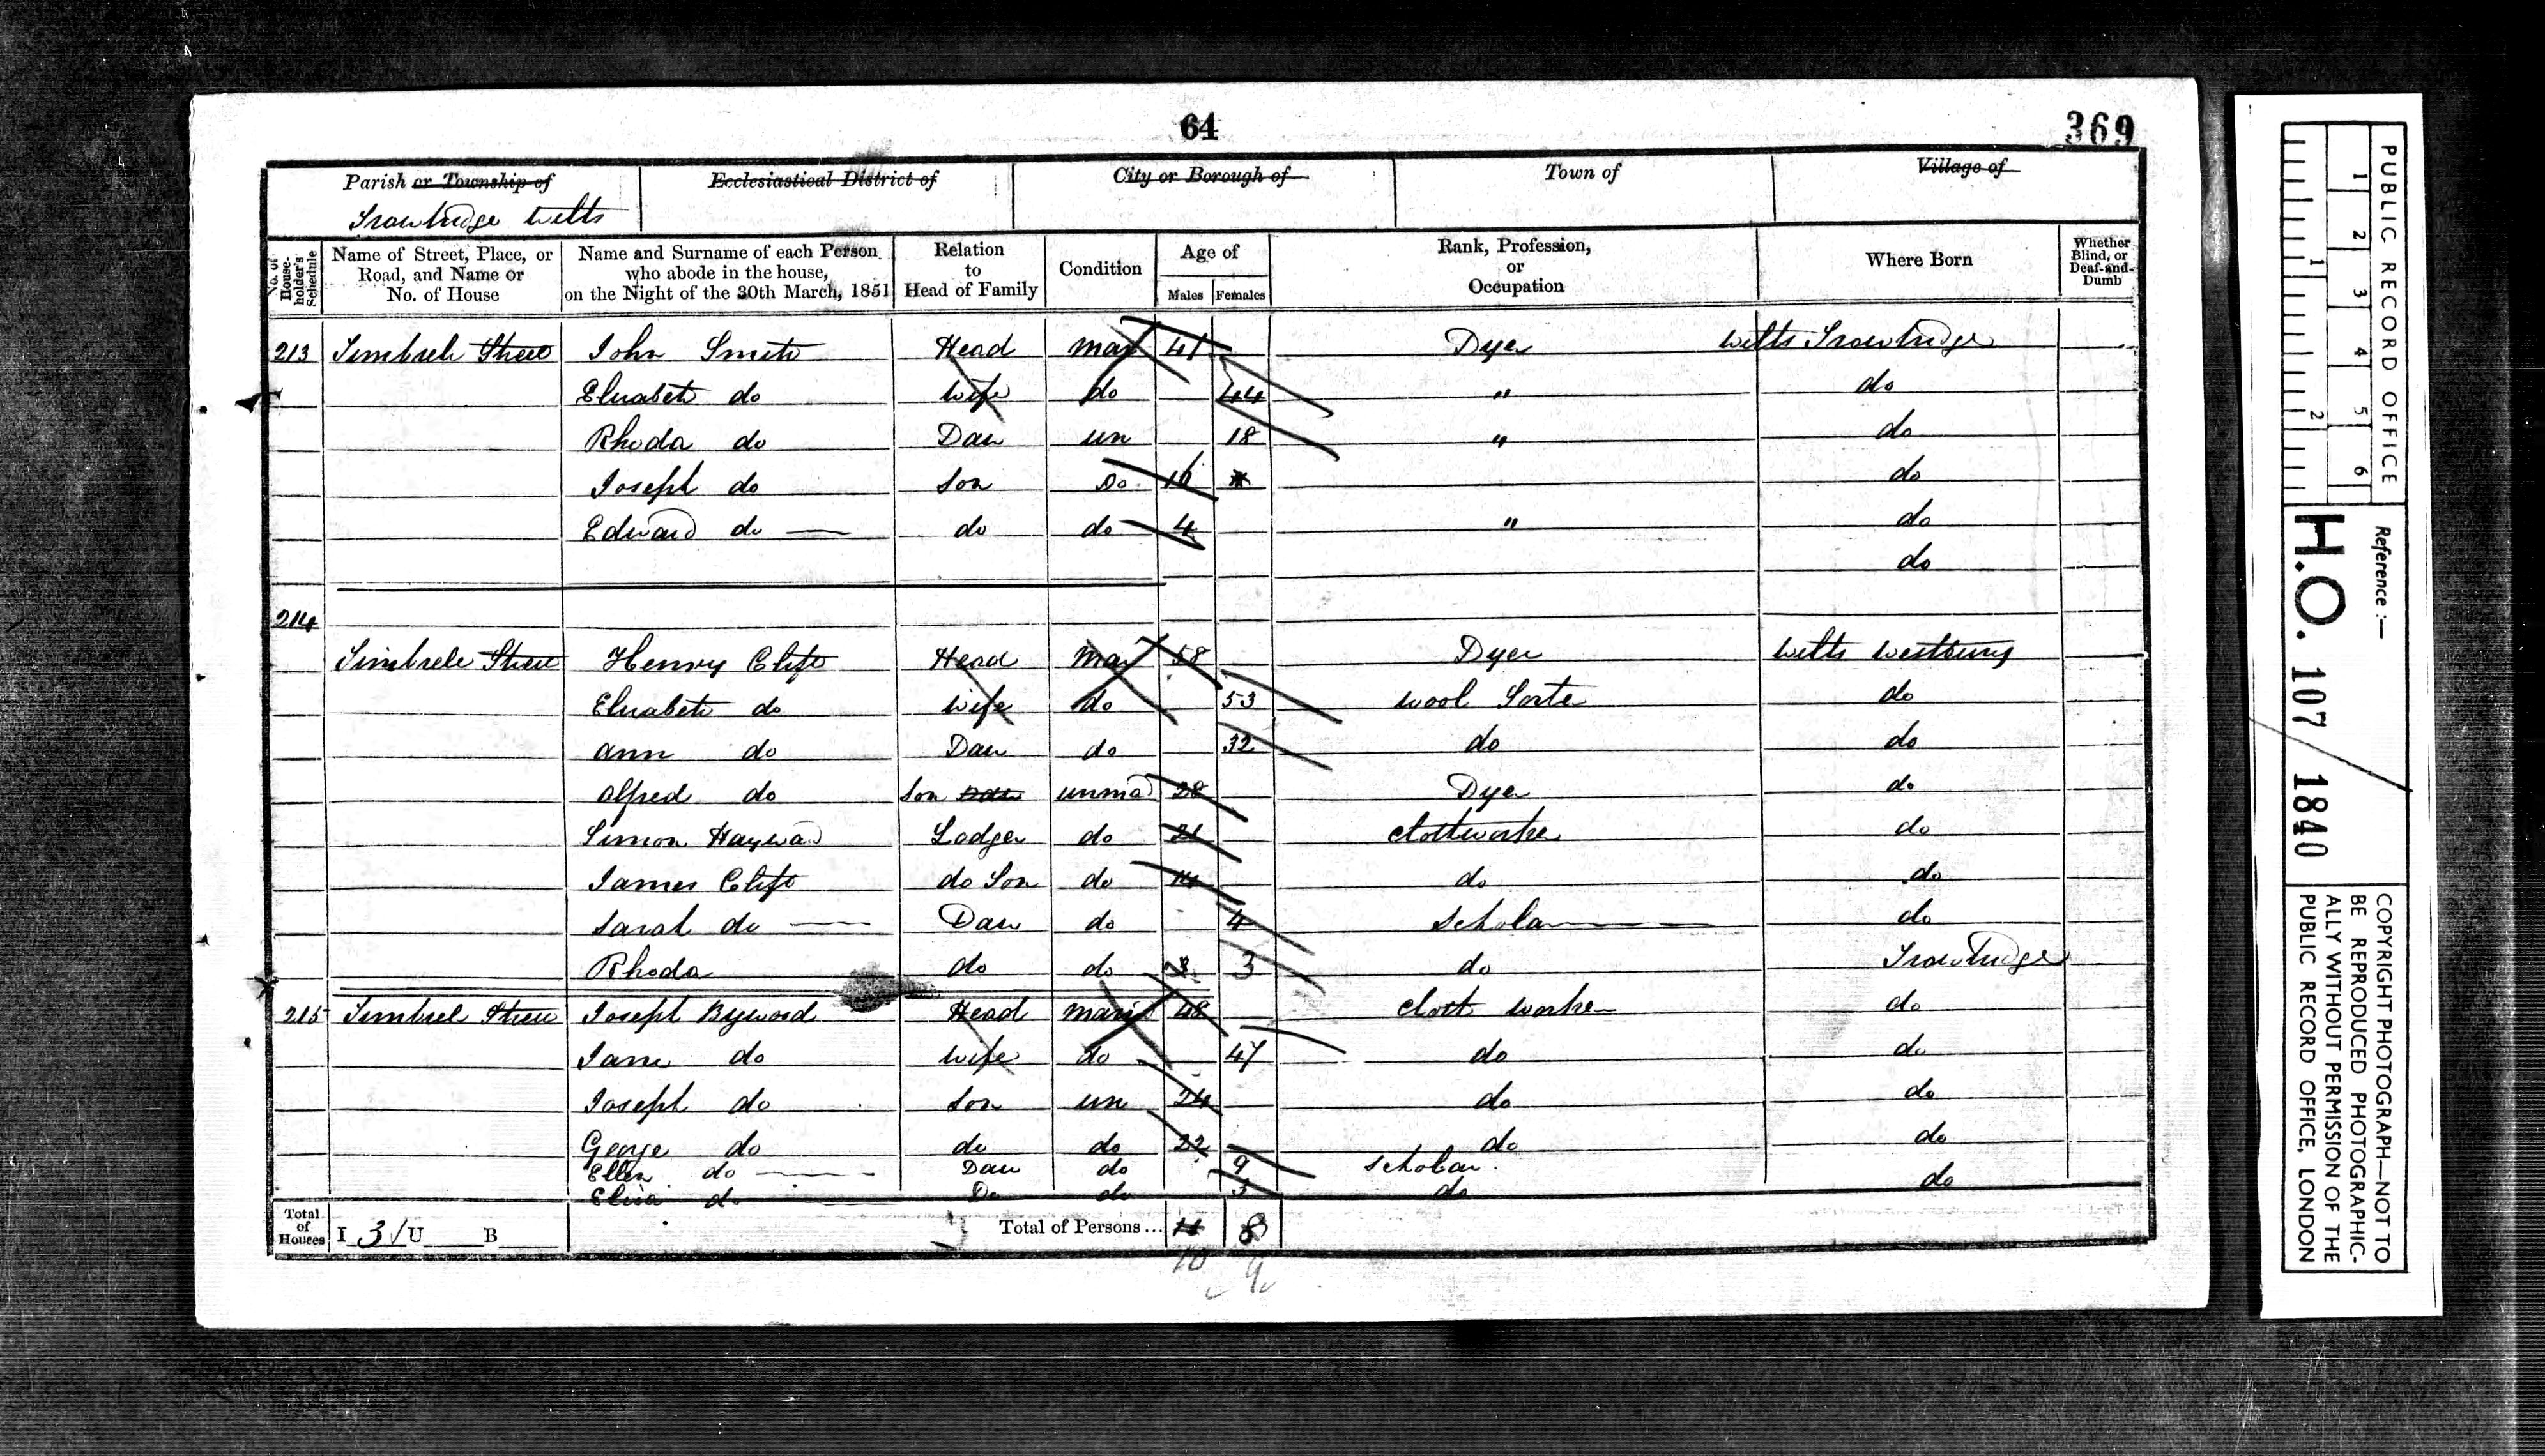 64
369
Parish or Township of Ecclesiastical District of City or Borough of Town of Village of
Trowbridge Wilts
No. of House-holder's Schedule Name of Street, Place, or Road, and Name or No. of House Name and Surname of each Person who abode in the house, on the Night of the 30th March, 1851 Relation to Head of Family Condition Age of Males Females Rank, Profession, or Occupation Where Born Whether Blind, or Deaf-and-Dumb
213 Timbrele Street John Smith Head Mar 41 Dyer Wilts Trowbridge
Elizabeth do Wife do 44 " do
Rhoda do Dau un 18 " do
Joseph do Son Do 16 do
Edward do do do 4 " do
do
214
Timbrele Street Henry Clift Head Mar 58 Dyer Wilts Westbury
Elizabeth do Wife do 53 Wool Sorter do
Ann do Dau do 32 do do
Alfred do Son Dau unmd 28 Dyer do
Simon Hayward Lodger do 21 Clothworker do
James Clift do Son do 14 do do
Sarah do Dau do 4 Scholar do
Rhoda do do 3 3 do Trowbridge
215 Timbrel Street Joseph Byword Head Marrd 48 Cloth Worker do
Jane do Wife do 47 do do
Joseph do Son un 24 do do
George do do do 22 do do
Ellen do Dau do 9 Scholar
Eliza do Do do 5 do do
Total of Houses I 3 U B Total of Persons... 11 8
10 9
PUBLIC RECORD OFFICE
1 2 3 4 5 6
1 2
Reference :-
H.O. 107 / 1840
COPYRIGHT PHOTOGRAPH—NOT TO
BE REPRODUCED PHOTOGRAPHIC-
ALLY WITHOUT PERMISSION OF THE
PUBLIC RECORD OFFICE, LONDON